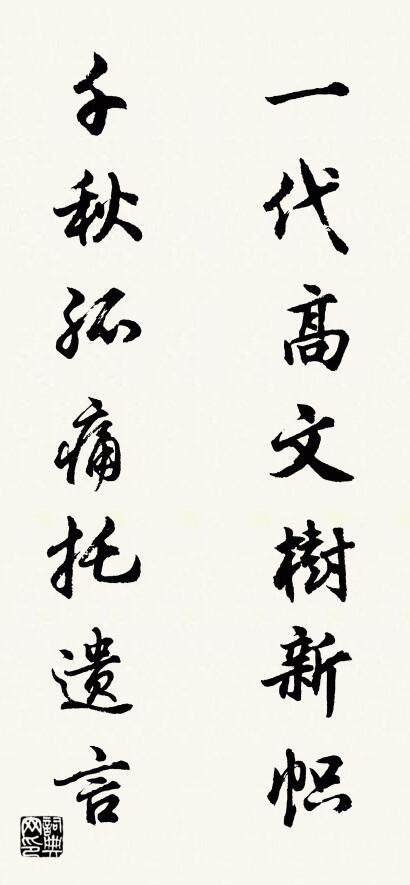 一代高文樹新帜
千秋孤痛托遗言
詞典网印